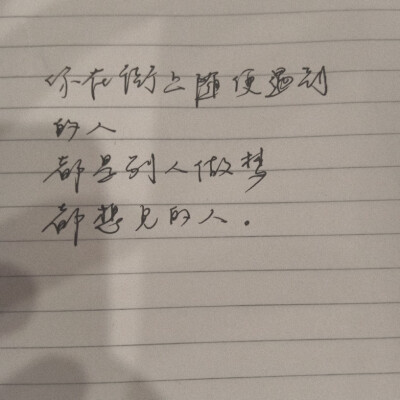 你在街上随便遇到
的人
都是别人做梦
都想见的人.